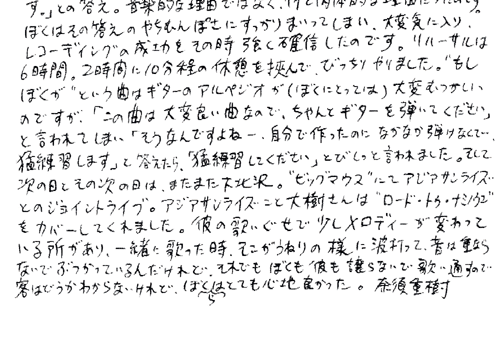 す。」との答え。音楽的な理由ではなく、けど肉体的な理由だったのです。
ぼくはその答えのやちむんぽさにすっかりまいってしまい、大変気に入り、
レコーディングの成功をその時強く確信したのです。リハーサルは
6時間。2時間に10分程の休憩を挟んで、びっちりやりました。"もし
ぼくが"という曲はギターのアルペジオが(ぼくにとっては)大変むつかしい
のですが、「この曲は大変良い曲なので、ちゃんとギターを弾いてください」
と言われてしまい「そうなんですよねー、自分で作ったのになかなか弾けなくて、
猛練習します」と答えたら、「猛練習してください」とびしっと言われました。そして
次の日とその次の日は、またまた下北沢。"ビッグマウス"にてアジアサンライズ
とのジョイントライブ。アジアサンライズこと大樹さんは"ロード・トゥ・ナシカゴ"
をカバーしてくれました。彼の歌いぐせで少しメロディーが変わって
いる所があり、一緒に歌った時、そこがうねりの様に波打って、音は重なら
ないでぶつかっているんだけれど、それでもぼくも彼も譲らないで歌い通すので、
客はどうかわからないけれど、ぼくらはとても心地良かった。 奈須重樹